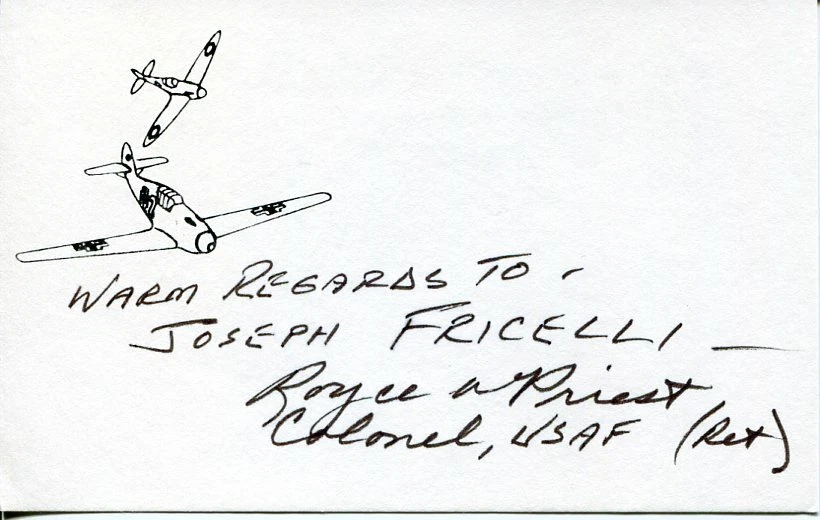 WARM REGARDS TO -
JOSEPH FRICELLI —
Royce W Priest
Colonel, USAF (Ret)